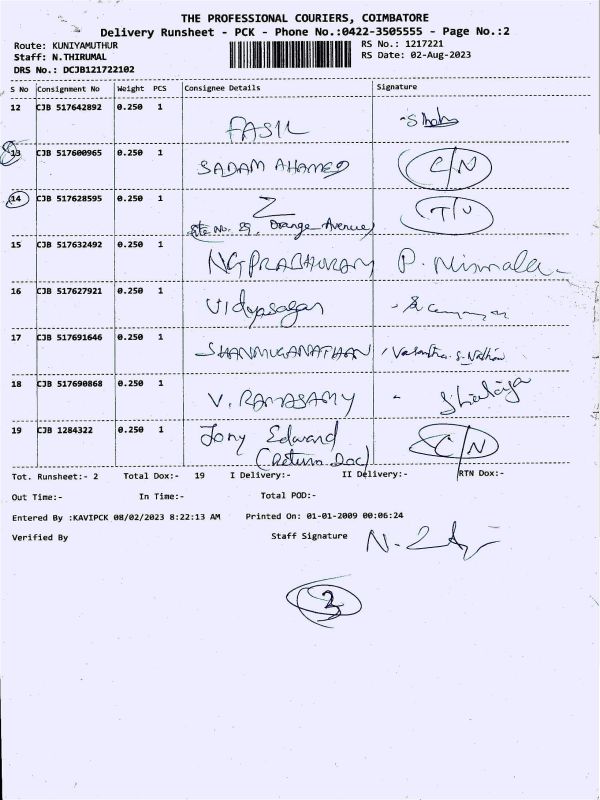 THE PROFESSIONAL COURIERS, COIMBATORE
Delivery Runsheet - PCK - Phone No.:0422-3505555 - Page No.:2
Route: KUNIYAMUTHUR
RS No.: 1217221
Staff: N.THIRUMAL
RS Date: 02-Aug-2023
DRS No.: DCJB121722102
S No Consignment No Weight PCS Consignee Details Signature
12 CJB 517642892 0.250 1
FASIL
13 CJB 517600965 0.250 1
SADAM AHAMED C/N
14 CJB 517628595 0.250 1
Z T/U
Site No. 29, Orange Avenue
15 CJB 517632492 0.250 1
NG PRABHURAM P. Nirmala
16 CJB 517627921 0.250 1
Vidyasagar
17 CJB 517691646 0.250 1
SHANMUGANATHAN
18 CJB 517690868 0.250 1
V. RAMASAMY
19 CJB 1284322 0.250 1
Tony Edward C/N
(Return Doc)
Tot. Runsheet:- 2 Total Dox:- 19 I Delivery:- II Delivery:- RTN Dox:-
Out Time:- In Time:- Total POD:-
Entered By :KAVIPCK 08/02/2023 8:22:13 AM Printed On: 01-01-2009 00:06:24
Verified By Staff Signature
3